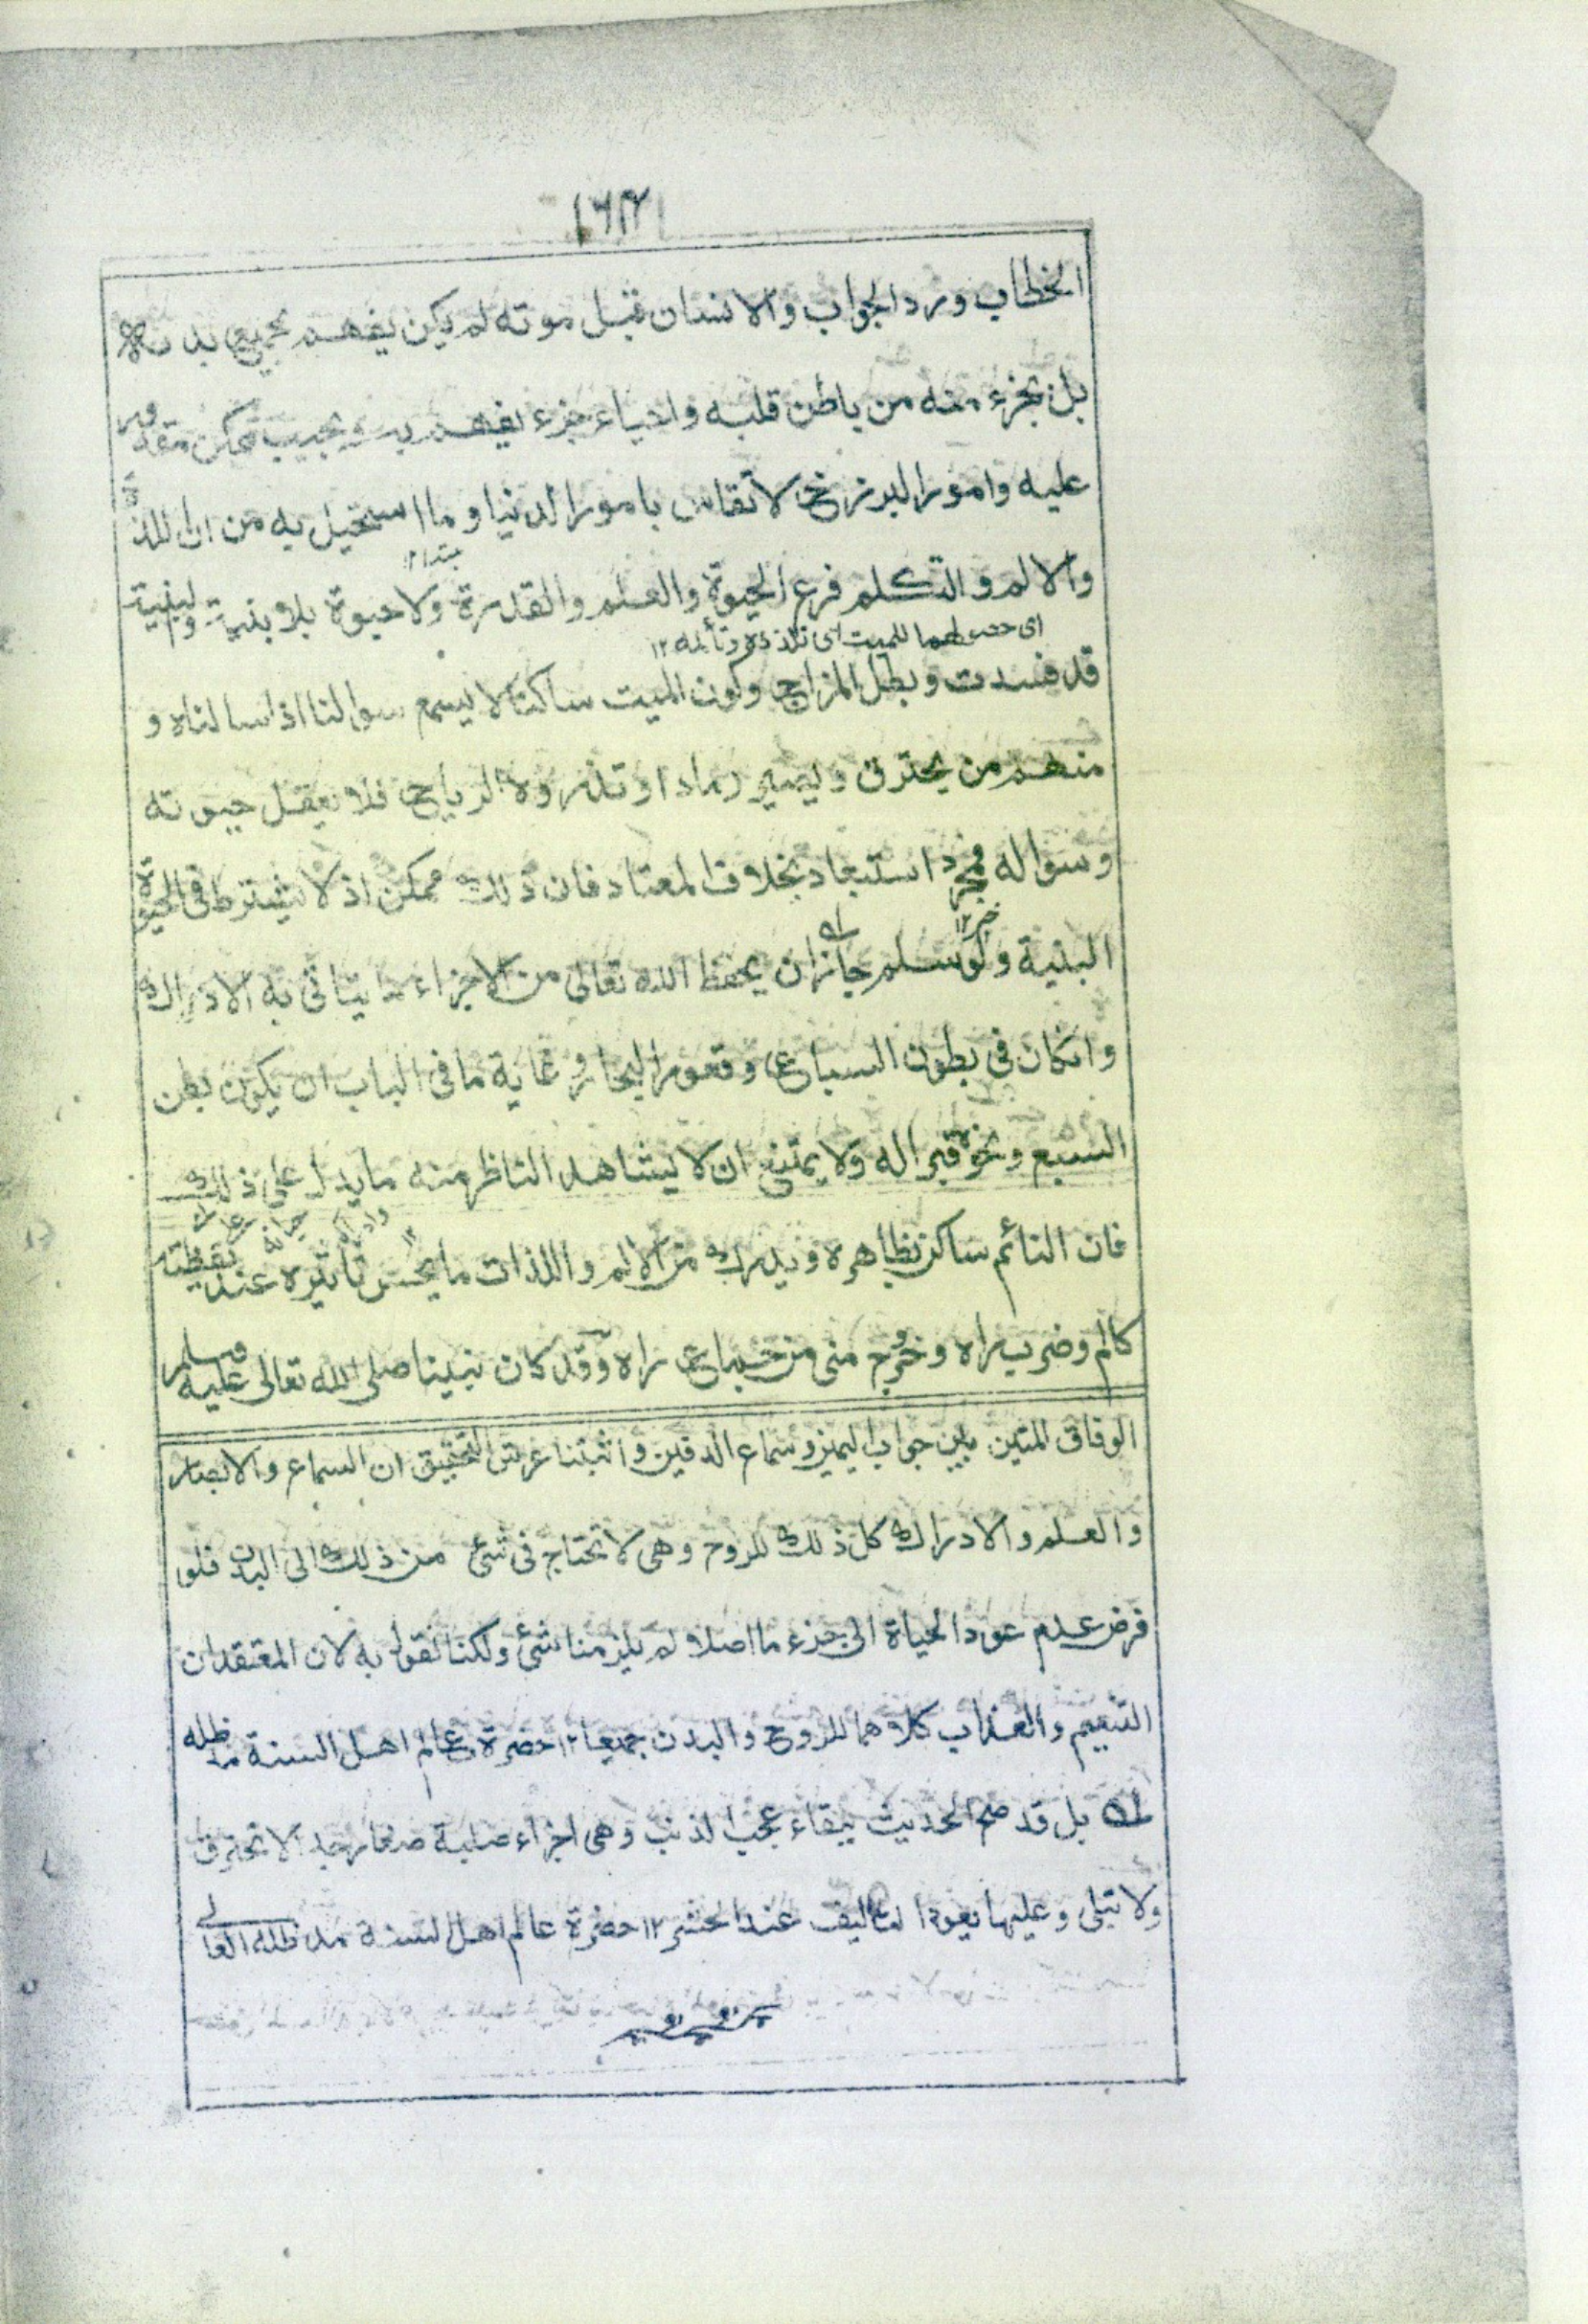 الخطاب ورد الجواب والانسان قبل موته لم يكن يفهم بجميع بدنه
بل بجزء منه من باطن قلبه واحياء جزء يفهم به ويجيب ممكن مقدور
عليه وامور البرزخ لا تقاس بامور الدنيا وما استحيل به من ان اللذة
مبتدا ١٢
والالم والتكلم فرع الحيوة والعلم والقدرة ولا حيوة بلا بنية والبنية
اى حصولهما للميت اى تلذذه وتألمه ١٢
قد فسدت وبطل المزاج وكون الميت ساكنا لا يسمع سوالنا اذا سالناه و
منهم من يحترق ويصير رمادا وتذروه الرياح فلا يعقل حيوته
وسواله مجرد استبعاد بخلاف المعتاد فان ذلك ممكن اذ لا يشترط فى الحيوة
خبر ١٢
البنية ولو سلم جاز ان يحفظ الله تعالى من الاجزاء ما يتاتى به الادراك
وانكان فى بطون السباع وقعور البحار وغاية ما فى الباب ان يكون بطن
السبع ونحوه قبرا له ولا يمتنع ان لا يشاهد الناظر منه ما يدل على ذلك
فان النائم ساكن بظاهره ويدرك من الالم واللذات ما يحس تاثيره عند يقظته
كالم وضرب راه وخروج منى من جماع راه وقد كان نبينا صلى الله تعالى عليه وسلم
الوفاق المتين بين جواب اليمين وسماع الدفين واثبتنا عرش التحقيق ان السماع والابصار
والعلم والادراك كل ذلك للروح وهى لا تحتاج فى شئ من ذلك الى البدن فلو
فرض عدم عود الحياة الى جزء ما اصلا لم يلزمنا شئ ولكنا نقول به لان المعتقد ان
التنعيم والعذاب كلاهما للروح والبدن جميعا ١٢ حضرة عالم اهل السنة مد ظله
بل قد صح الحديث ببقاء عجب الذنب وهى اجزاء صلبة صغار جدا لا تحترق
ولا تبلى وعليها يعود التاليف عند الحشر ١٢ حضرة عالم اهل السنة مد ظله العالى